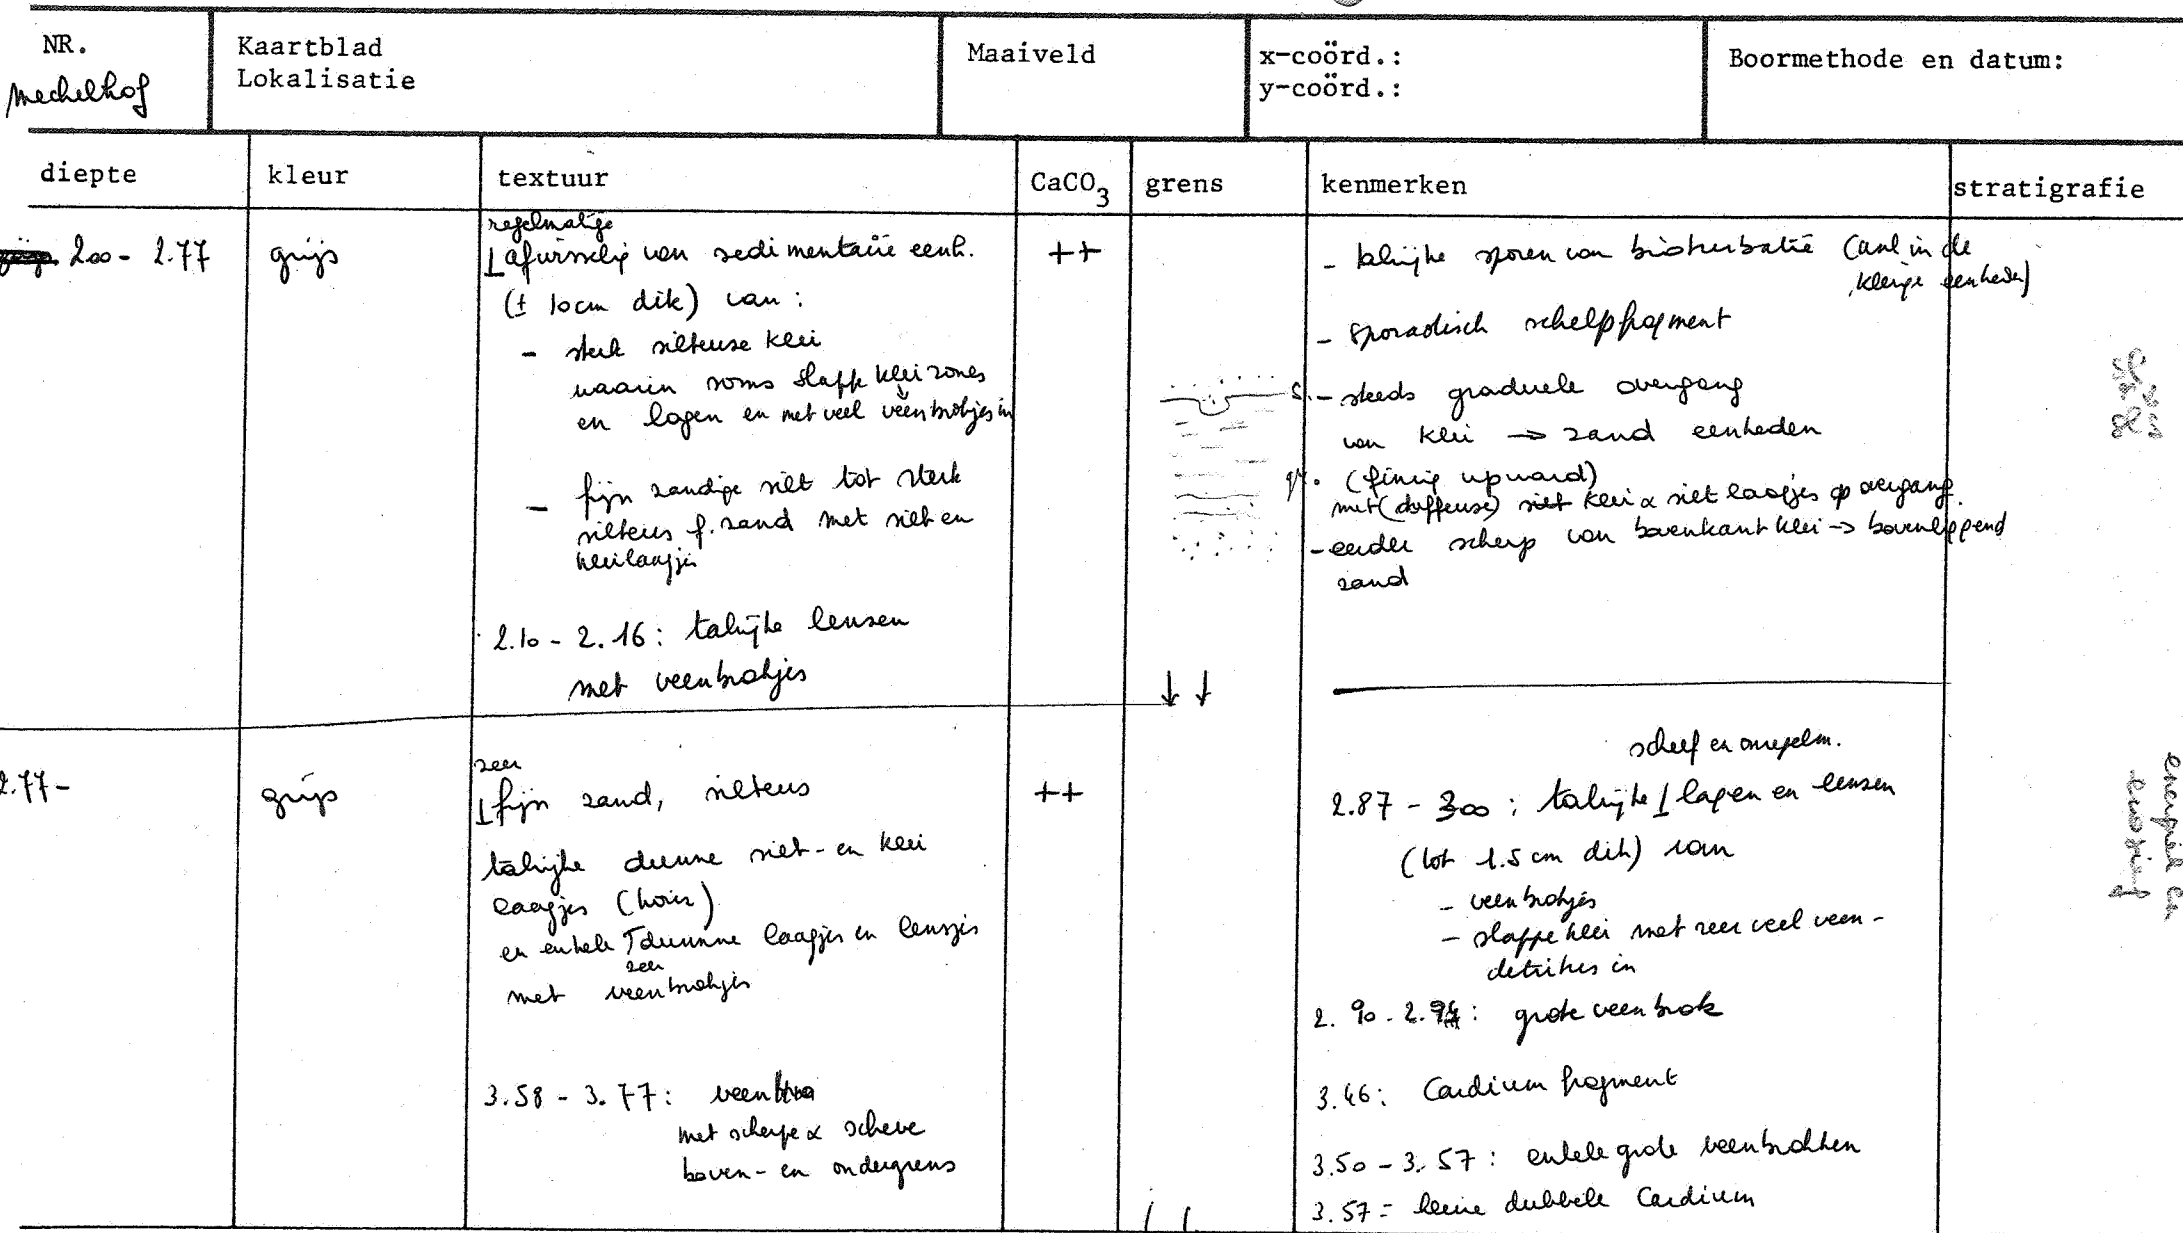 NR.
Mechelhof
Kaartblad
Lokalisatie
Maaiveld
x-coörd.:
y-coörd.:
Boormethode en datum:
diepte
kleur
textuur
CaCO3
grens
kenmerken
stratigrafie
2.00 - 2.77
grijs
regelmatige
afwisselig van sedimentaire eenh.
(± 10cm dik) van:
- sterk silteuse klei
waarin soms slappe kleizones
en lagen en met veel veenbrokjes in
- fijn zandige silt tot sterk
silteus f. zand met silt en
kleilaagjes
2.10 - 2.16: talrijke lensen
met veenbrokjes
++
↓ ↓
- talrijke sporen van bioturbatie (aal in de
kleiige eenheden)
- sporadisch schelpfragment
s. - steeds graduele overgang
van klei → zand eenheden
gr. (finig upward)
met (diffeuse) klei & silt laagjes op overgang.
- eerder scherp van bovenkant klei → bovenliggend
zand
2.77 -
grijs
zeer
fijn zand, silteus
talrijke dunne silt- en klei
laagjes (horiz)
en enkele dunne laagjes en lensjes
zeer
met veenbrokjes
3.58 - 3.77: veen
met scherpe & scheve
boven- en ondergrens
++
scheef en onregelm.
2.87 - 300: talrijke lagen en lensen
(tot 1.5 cm dik) van
- veenbrokjes
- slappe klei met zeer veel veen-
detritus in
2.90 - 2.94: grote veenbrok
3.46: Cardium fragment
3.50 - 3.57: enkele grote veenbrokken
3.57 = kleine dubbele Cardium